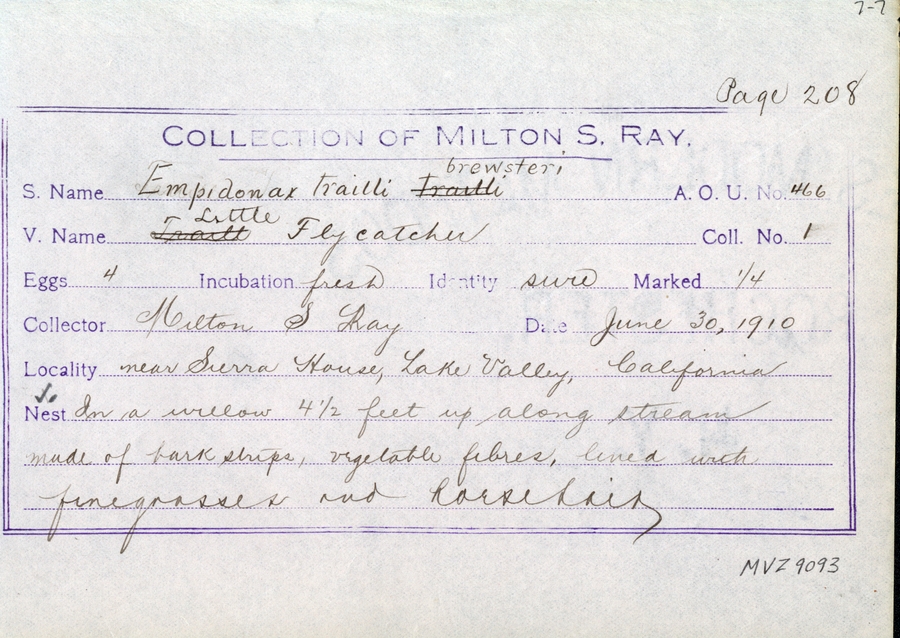 7-7
Page 208
COLLECTION OF MILTON S. RAY.
brewsteri
S. Name Empidonax trailli trailli A. O. U. No. 466
Little
V. Name Traill Flycatcher Coll. No. 1
Eggs 4 Incubation fresh Identity sure Marked 1/4
Collector Milton S Ray Date June 30, 1910
Locality near Sierra House, Lake Valley, California
Nest In a willow 4 1/2 feet up along stream
made of bark strips, vegetable fibres, lined with
fine grasses and horsehair
MVZ 9093